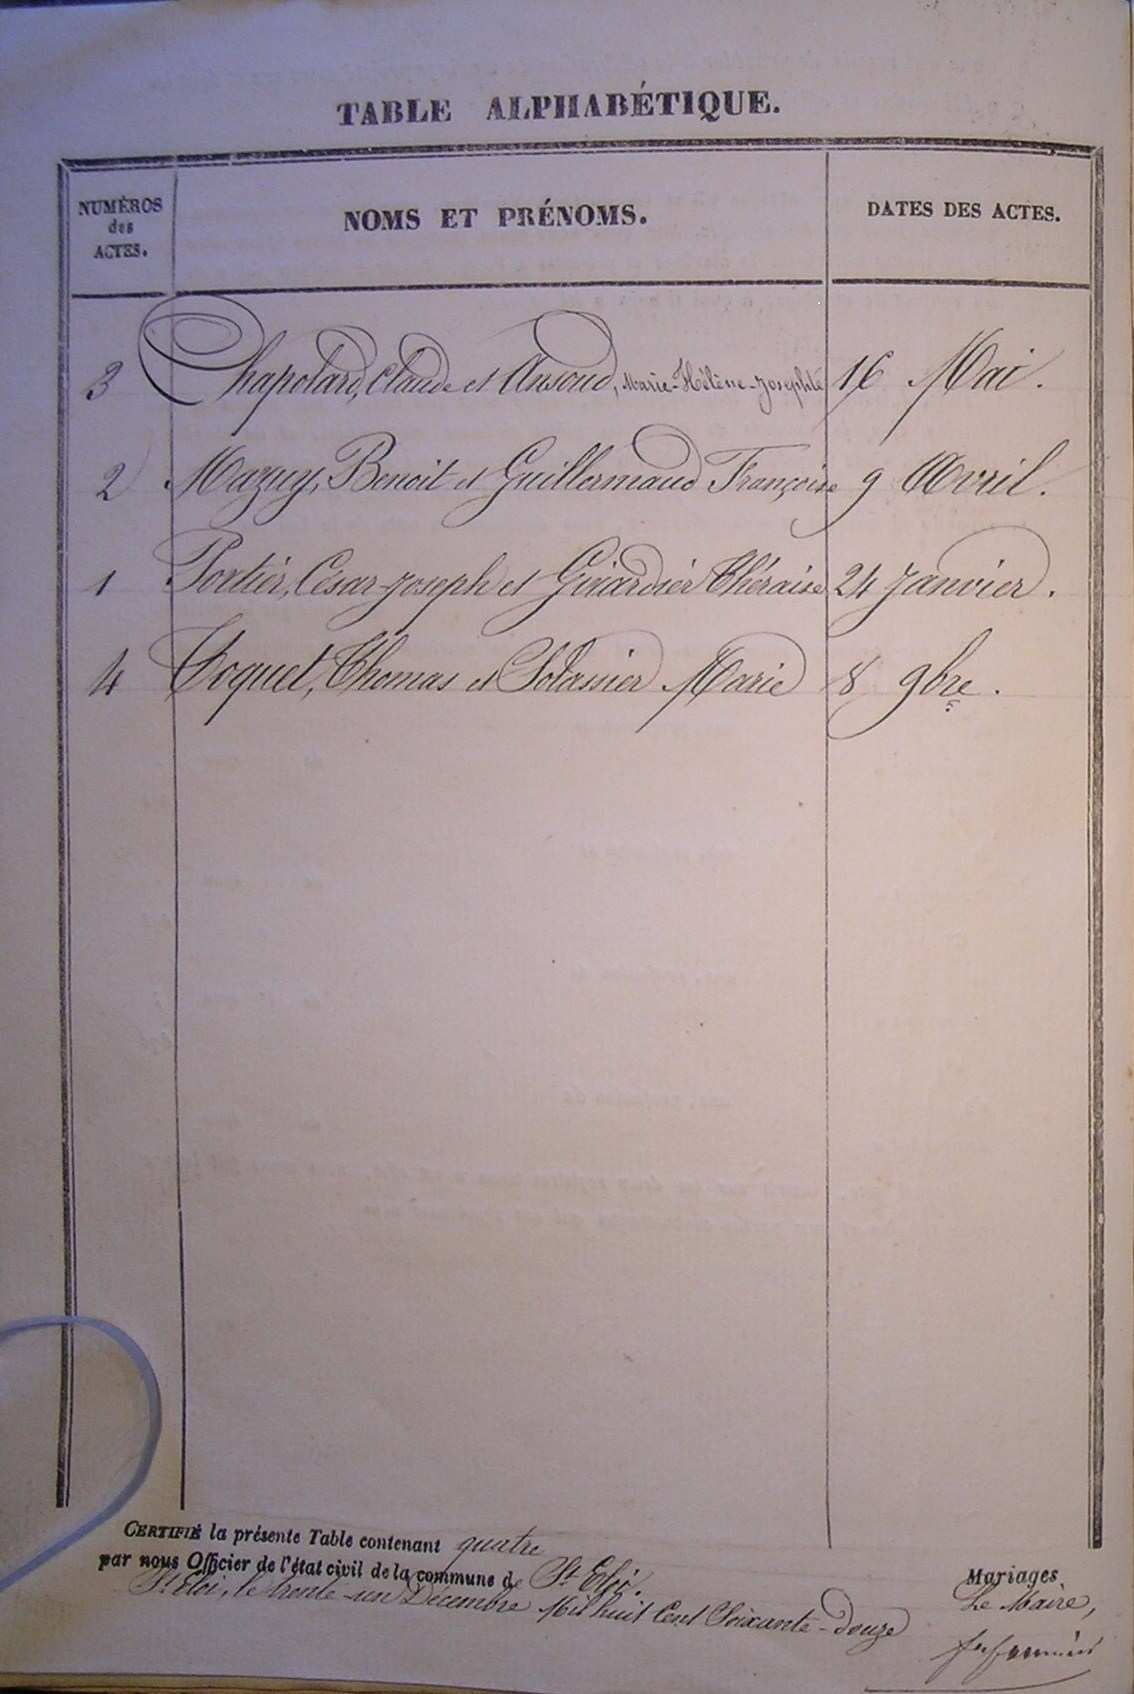 TABLE ALPHABÉTIQUE.
NUMÉROS
des
ACTES.
NOMS ET PRÉNOMS.
DATES DES ACTES.
3 Chapolard, Claude et Ansoud, Marie-Hélène-Josephte 16 Mai.
2 Mazuy, Benoit et Guillermaud Françoise 9 Avril.
1 Portier, César-Joseph et Girardier Théraise 24 Janvier.
4 Toquet, Thomas et Solassier Marie 8 9bre.
CERTIFIÉ la présente Table contenant quatre
par nous Officier de l'état civil de la commune de St Eloi.
Mariages
St Eloi, le trente-un Décembre Mil huit Cent Soixante-douze
Le Maire,